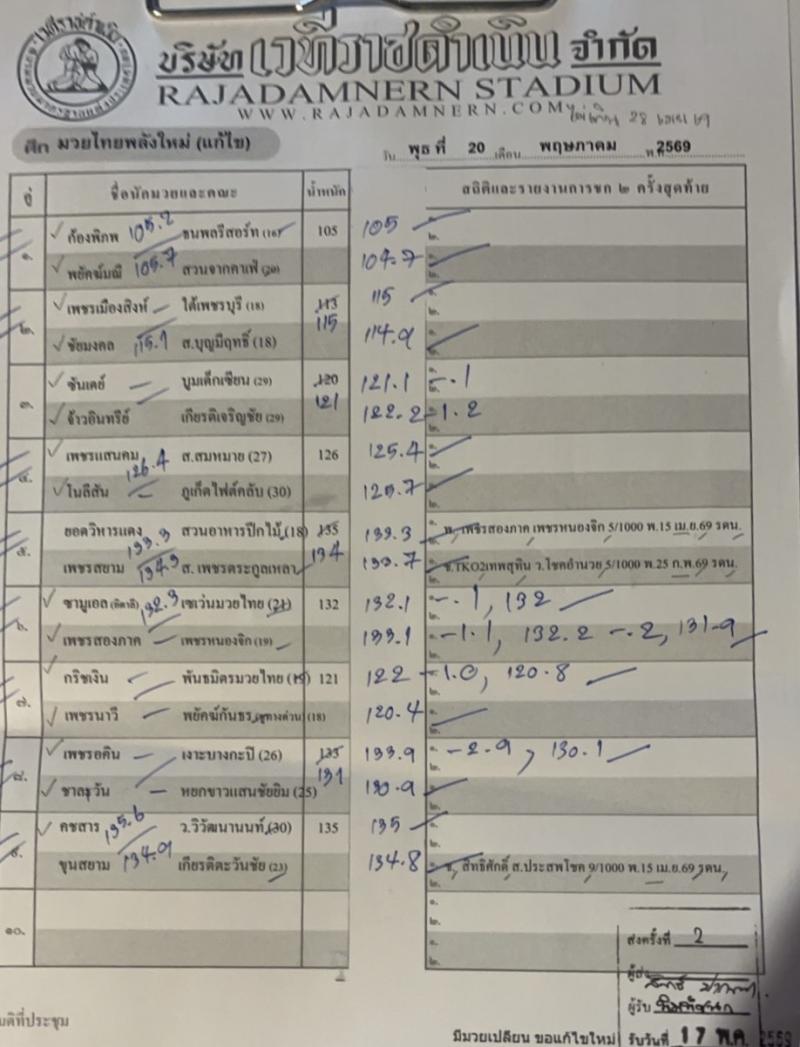 บริษัท เวทีราชดำเนิน จำกัด
RAJADAMNERN STADIUM
WWW.RAJADAMNERN.COM
ศึก มวยไทยพลังใหม่ (แก้ไข)
วัน พุธ ที่ 20 เดือน พฤษภาคม พ.ศ. 2569
คู่ ชื่อนักมวยและคณะ น้ำหนัก สถิติและรายงานการชก ๒ ครั้งสุดท้าย
๑. ก้องพิภพ 105.2 ชนพลรีสอร์ท (16) 105 105
พยัคฆ์มณี 105.7 สวนจากคาเฟ่ (20) 104.7
๒. เพชรเมืองสิงห์ ใต้เพชรบุรี (18) 113 115 115
ชัยมงคล 115.1 ส.บุญมีฤทธิ์ (18) 114.9
๓. ซันเดย์ บูมเด็กเซียน (29) 120 121 121.1 -.1
จ้าวอินทรีย์ เกียรติเจริญชัย (29) 122.2 -1.2
๔. เพชรแสนคม 126.4 ส.สมหมาย (27) 126 125.4
โนลีสัน ภูเก็ตไฟต์คลับ (30) 125.7
๕. ยอดวิหารแดง 133.3 สวนอาหารปีกไม้ (18) 135 134 133.3 พ. เพชรสองภาค เพชรหนองจิก 5/1000 พ.15 เม.ย.69 รดน.
เพชรสยาม 134.3 ส.เพชรตระกูลเหลา 133.7 ช.TKO2เทพสุทิน ว.โชคอำนวย 5/1000 พ.25 ก.พ.69 รดน.
๖. ซามูเอล (อิตาลี) 132.3 เซเว่นมวยไทย (21) 132 132.1 -.1, 132
เพชรสองภาค เพชรหนองจิก (19) 133.1 -1.1, 132.2 -.2, 131.9
๗. กริชเงิน พันธมิตรมวยไทย (19) 121 122 -1.0, 120.8
เพชรนารี พยัคฆ์กันธร (18) 120.4
๘. เพชรอคิน เงาะบางกะปิ (26) 135 131 133.9 -2.9, 130.1
ชาละวัน หยกขาวแสนชัยยิม (25) 130.9
๙. คชสาร 135.6 ว.วิวัฒนานนท์ (30) 135 135
ขุนสยาม 134.9 เกียรติตะวันชัย (23) 134.8 ช. สิทธิศักดิ์ ส.ประสพโชค 9/1000 พ.15 เม.ย.69 รดน.
๑๐.
ส่งครั้งที่ 2
ผู้ส่ง
ผู้รับ
มติที่ประชุม
มีมวยเปลี่ยน ขอแก้ไขใหม่ รับวันที่ 17 พ.ค. 2569